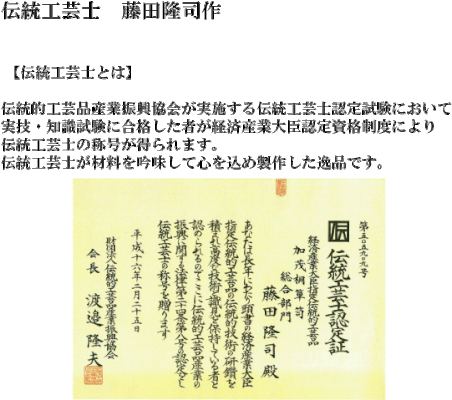 伝統工芸士　藤田隆司作
【伝統工芸士とは】
伝統的工芸品産業振興協会が実施する伝統工芸士認定試験において
実技・知識試験に合格した者が経済産業大臣認定資格制度により
伝統工芸士の称号が得られます。
伝統工芸士が材料を吟味して心を込め製作した逸品です。
伝統工芸士認定証
経済産業大臣指定伝統的工芸品
加茂桐箪笥
総合部門
藤田隆司殿
あなたは長年にわたり頭書の経済産業大臣
指定伝統的工芸品の伝統的技術の研鑽を
積まれ高度の技術・識見を保持している者と
認められるのでここに伝統的工芸品産業の
振興に関する法律第二十四条第八号の認定をし
伝統工芸士の称号を贈ります
平成十六年二月二十五日
財団法人伝統的工芸品産業振興協会
会長　渡邉隆夫